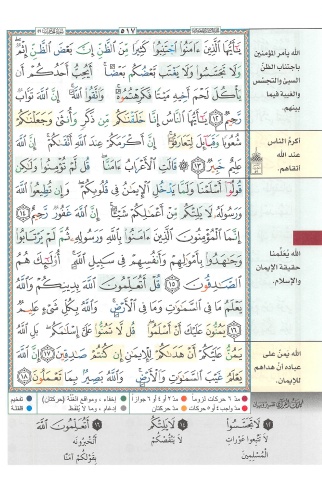 ٥١٧
يَـٰٓأَيُّهَا ٱلَّذِينَ ءَامَنُوا۟ ٱجْتَنِبُوا۟ كَثِيرًا مِّنَ ٱلظَّنِّ إِنَّ بَعْضَ ٱلظَّنِّ إِثْمٌ
وَلَا تَجَسَّسُوا۟ وَلَا يَغْتَب بَّعْضُكُم بَعْضًا أَيُحِبُّ أَحَدُكُمْ أَن
يَأْكُلَ لَحْمَ أَخِيهِ مَيْتًا فَكَرِهْتُمُوهُ وَٱتَّقُوا۟ ٱللَّهَ إِنَّ ٱللَّهَ تَوَّابٌ
رَّحِيمٌ ١٢ يَـٰٓأَيُّهَا ٱلنَّاسُ إِنَّا خَلَقْنَـٰكُم مِّن ذَكَرٍ وَأُنثَىٰ وَجَعَلْنَـٰكُمْ
شُعُوبًا وَقَبَآئِلَ لِتَعَارَفُوٓا۟ إِنَّ أَكْرَمَكُمْ عِندَ ٱللَّهِ أَتْقَىٰكُمْ إِنَّ ٱللَّهَ
عَلِيمٌ خَبِيرٌ ١٣ قَالَتِ ٱلْأَعْرَابُ ءَامَنَّا قُل لَّمْ تُؤْمِنُوا۟ وَلَـٰكِن
قُولُوٓا۟ أَسْلَمْنَا وَلَمَّا يَدْخُلِ ٱلْإِيمَـٰنُ فِى قُلُوبِكُمْ وَإِن تُطِيعُوا۟ ٱللَّهَ
وَرَسُولَهُۥ لَا يَلِتْكُم مِّنْ أَعْمَـٰلِكُمْ شَيْـًٔا إِنَّ ٱللَّهَ غَفُورٌ رَّحِيمٌ ١٤
إِنَّمَا ٱلْمُؤْمِنُونَ ٱلَّذِينَ ءَامَنُوا۟ بِٱللَّهِ وَرَسُولِهِۦ ثُمَّ لَمْ يَرْتَابُوا۟
وَجَـٰهَدُوا۟ بِأَمْوَٰلِهِمْ وَأَنفُسِهِمْ فِى سَبِيلِ ٱللَّهِ أُو۟لَـٰٓئِكَ هُمُ
ٱلصَّـٰدِقُونَ ١٥ قُلْ أَتُعَلِّمُونَ ٱللَّهَ بِدِينِكُمْ وَٱللَّهُ
يَعْلَمُ مَا فِى ٱلسَّمَـٰوَٰتِ وَمَا فِى ٱلْأَرْضِ وَٱللَّهُ بِكُلِّ شَىْءٍ عَلِيمٌ
١٦ يَمُنُّونَ عَلَيْكَ أَنْ أَسْلَمُوا۟ قُل لَّا تَمُنُّوا۟ عَلَىَّ إِسْلَـٰمَكُم بَلِ ٱللَّهُ
يَمُنُّ عَلَيْكُمْ أَنْ هَدَىٰكُمْ لِلْإِيمَـٰنِ إِن كُنتُمْ صَـٰدِقِينَ ١٧ إِنَّ ٱللَّهَ
يَعْلَمُ غَيْبَ ٱلسَّمَـٰوَٰتِ وَٱلْأَرْضِ وَٱللَّهُ بَصِيرٌۢ بِمَا تَعْمَلُونَ ١٨
الله يأمر المؤمنين
باجتناب الظنّ
السيئ والتجسّس
والغيبة فيما
بينهم.
أكرمُ الناس
عند الله
أتقاهم.
الله يُعَلِّمنا
حقيقة الإيمان
والإسلام.
الله يَمنّ على
عباده أنْ هداهم
للإيمان.
مدّ ٦ حركات لزوماً
مدّ ٢ أو ٤ أو ٦ جوازاً
إخفاء، ومواقع الغُنَّة (حركتان)
تفخيم
مدّ واجب ٤ أو ٥ حركات
مدّ حركتان
إدغام، وما لا يُلفظ
قلقلة
١٢ لَا تَجَسَّسُوا
لَا تَتَّبِعُوا عَوْرَاتِ
الْمُسْلِمِينَ
١٤ لَا يَلِتْكُمْ
لَا يَنْقُصْكُمْ
١٦ أَتُعَلِّمُونَ اللَّهَ
أَتُخْبِرُونَهُ
بِقَوْلِكُمْ آمَنَّا